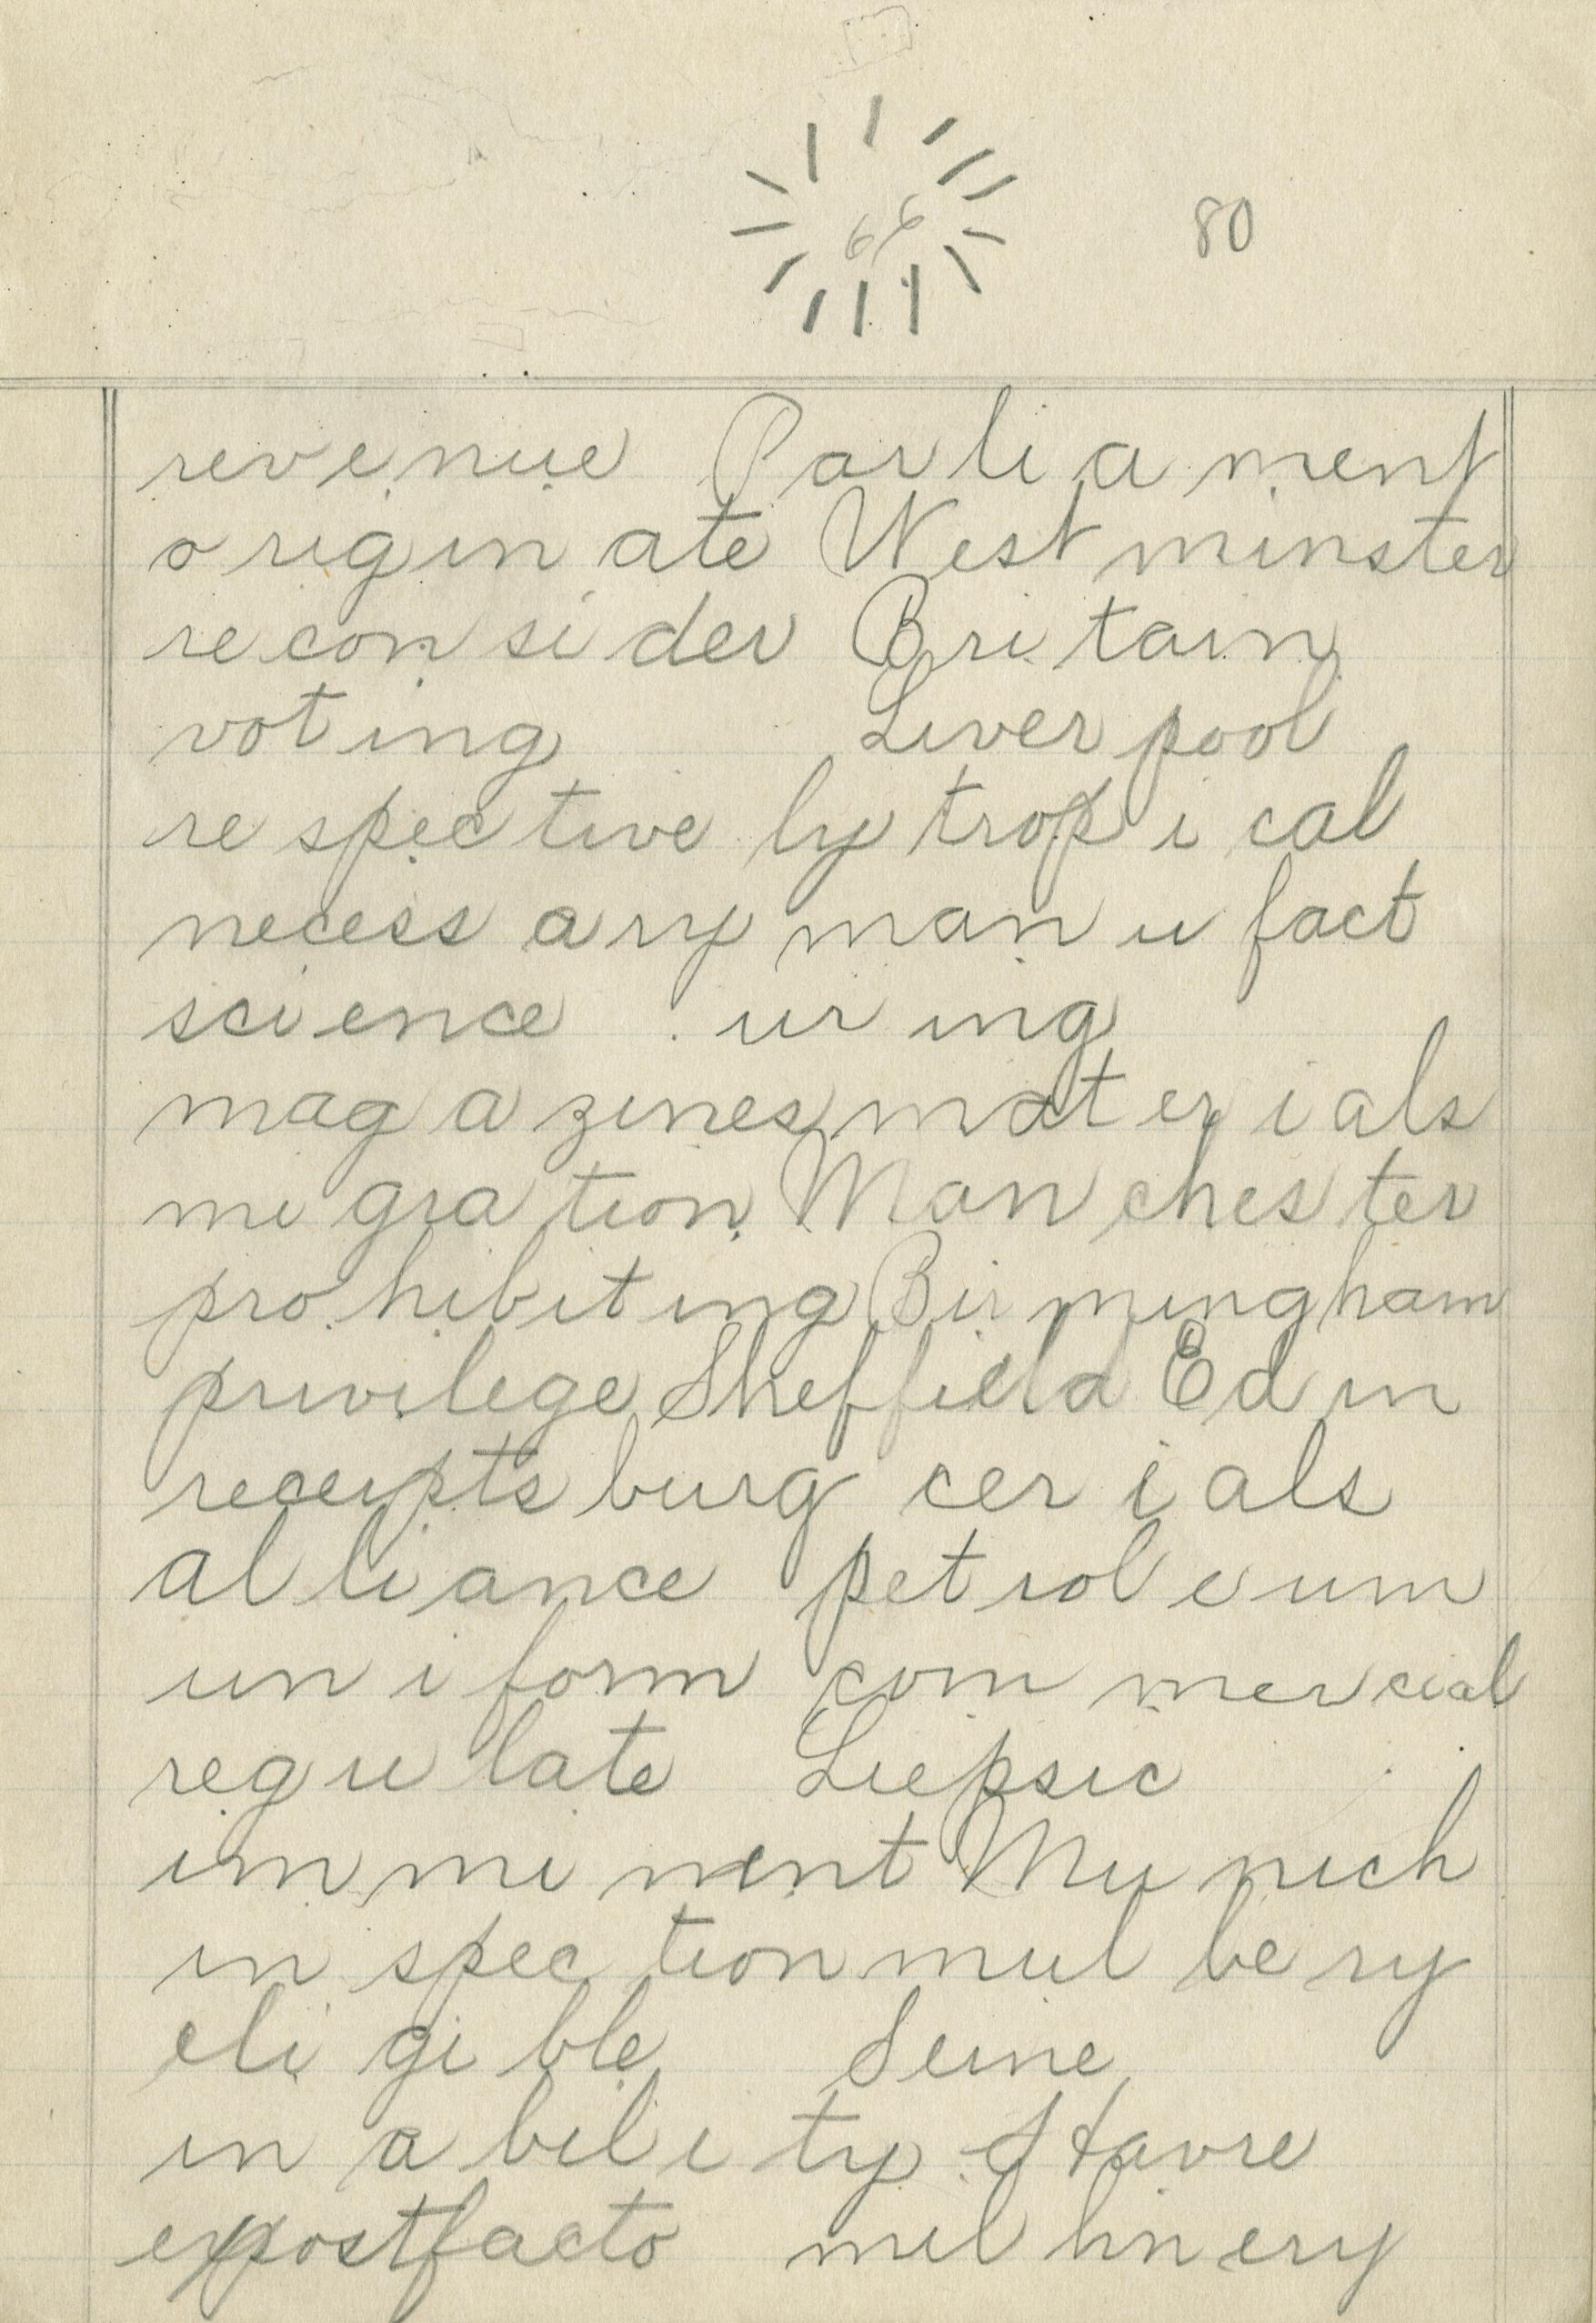 66 80
rev e nue Par li a ment
o rigin ate West minster
re con si der Bri tain
vot ing Liver pool
re spec tive ly trop i cal
necess a ry man u fact
sci ence ur ing
mag a zines mat er i als
mi gra tion Man ches ter
pro hibit ing Bir mingham
privilege Sheffield Ed in
receipts burg cer i als
al li ance pet rol e um
un i form com mer cial
reg u late Liepsic
im mi nent Mu nich
in spec tion mul be ry
eli gi ble Seine
in a bil i ty Havre
expostfacto mil lin ery